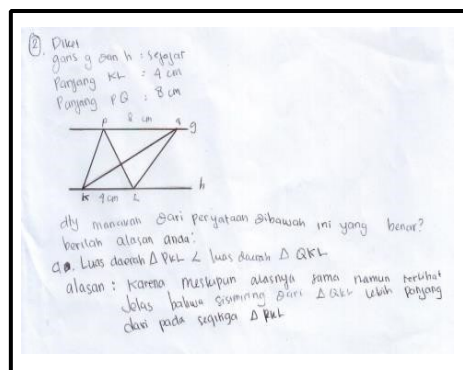 2. Diket
garis g dan h : sejajar
Panjang KL : 4 cm
Panjang PQ : 8 cm
P 8 cm Q g
K 4 cm L h
dty manakah dari peryataan dibawah ini yang benar?
berilah alasan anda!
a. Luas daerah Δ PKL < luas daerah Δ QKL
alasan : Karena meskipun alasnya sama namun terlihat
Jelas bahwa sisimiring dari Δ QKL lebih panjang
dari pada segitiga Δ PKL